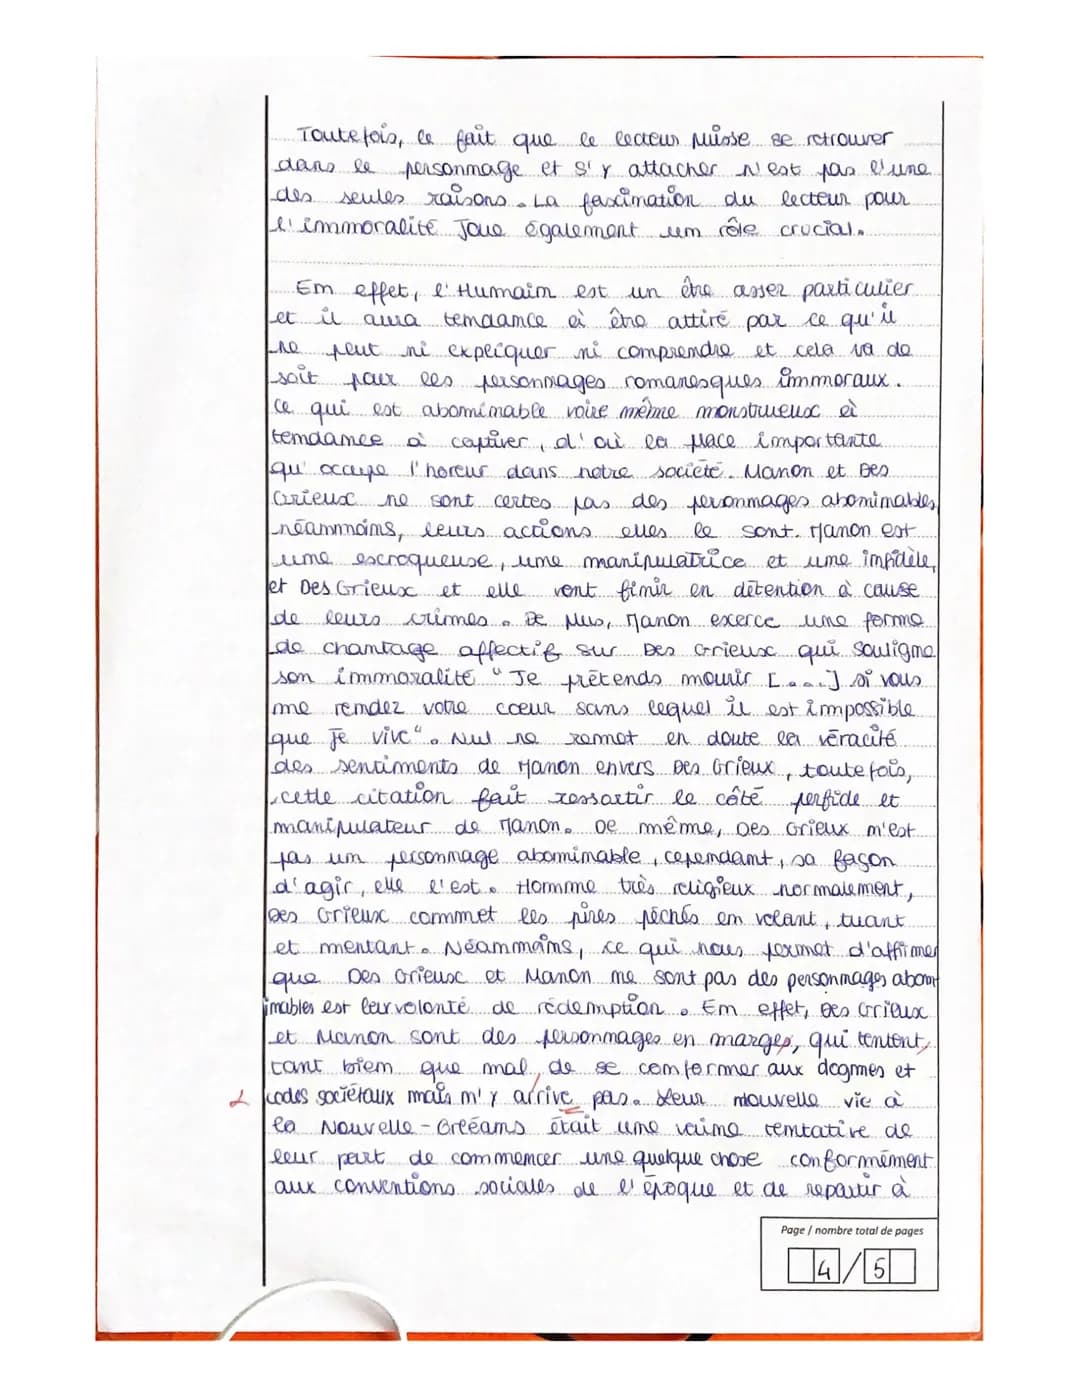 Toutefois, le fait que le lecteur puisse se retrouver
dans le personnage et s'y attacher n'est pas l'une
des seules raisons. La fascination du lecteur pour
l'immoralité joue également un rôle crucial.
En effet, l'Humain est un être assez particulier
et il aura tendance à être attiré par ce qu'il
ne peut ni expliquer ni comprendre et cela va de
soit pour les personnages romanesques immoraux.
Ce qui est abominable voire même monstrueux à
tendance à captiver, d'où la place importante
qu'occupe l'horeur dans notre société. Manon et Des
Grieux ne sont certes pas des personnages abominables,
néanmoins, leurs actions elles le sont. Manon est
une escroqueuse, une manipulatrice et une infidèle,
et Des Grieux et elle vont finir en détention à cause
de leurs crimes. De plus, Manon exerce une forme
de chantage affectif sur Des Grieux qui souligne
son immoralité "Je prétends mourir [...] si vous
me rendez votre cœur sans lequel il est impossible
que je vive". Nul ne remet en doute la véracité
des sentiments de Manon envers Des Grieux, toutefois,
cette citation fait ressortir le côté perfide et
manipulateur de Manon. De même, Des Grieux n'est
pas un personnage abominable, cependant, sa façon
d'agir, elle l'est. Homme très religieux normalement,
Des Grieux commet les pires péchés en volant, tuant
et mentant. Néanmoins, ce qui nous permet d'affirmer
que Des Grieux et Manon ne sont pas des personnages abom
inables est leur volonté de rédemption. En effet, Des Grieux
et Manon sont des personnages en marges, qui tentent,
tant bien que mal, de se conformer aux dogmes et
codes sociétaux mais n'y arrive pas. Leur nouvelle vie à
la Nouvelle-Orléans était une vaine tentative de
leur part de commencer une quelque chose conformément
aux conventions sociales de l'époque et de repartir à
Page / nombre total de pages
4/5